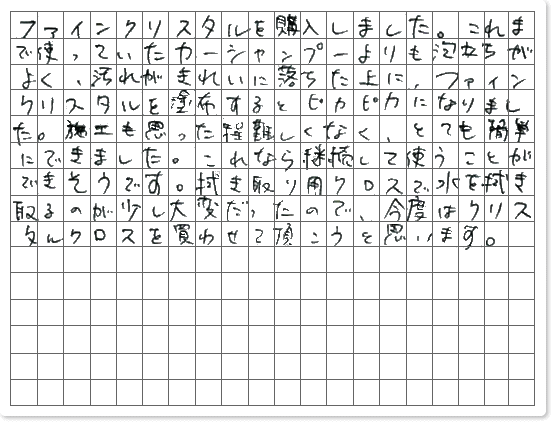 ファインクリスタルを購入しました。これま
で使っていたカーシャンプーよりも泡立ちが
よく、汚れがきれいに落ちた上に、ファイン
クリスタルを塗布するとピカピカになりまし
た。施工も思った程難しくなく、とても簡単
にできました。これなら継続して使うことが
できそうです。拭き取り用クロスで水を拭き
取るのが少し大変だったので、今度はクリス
タルクロスを買わせて頂こうと思います。